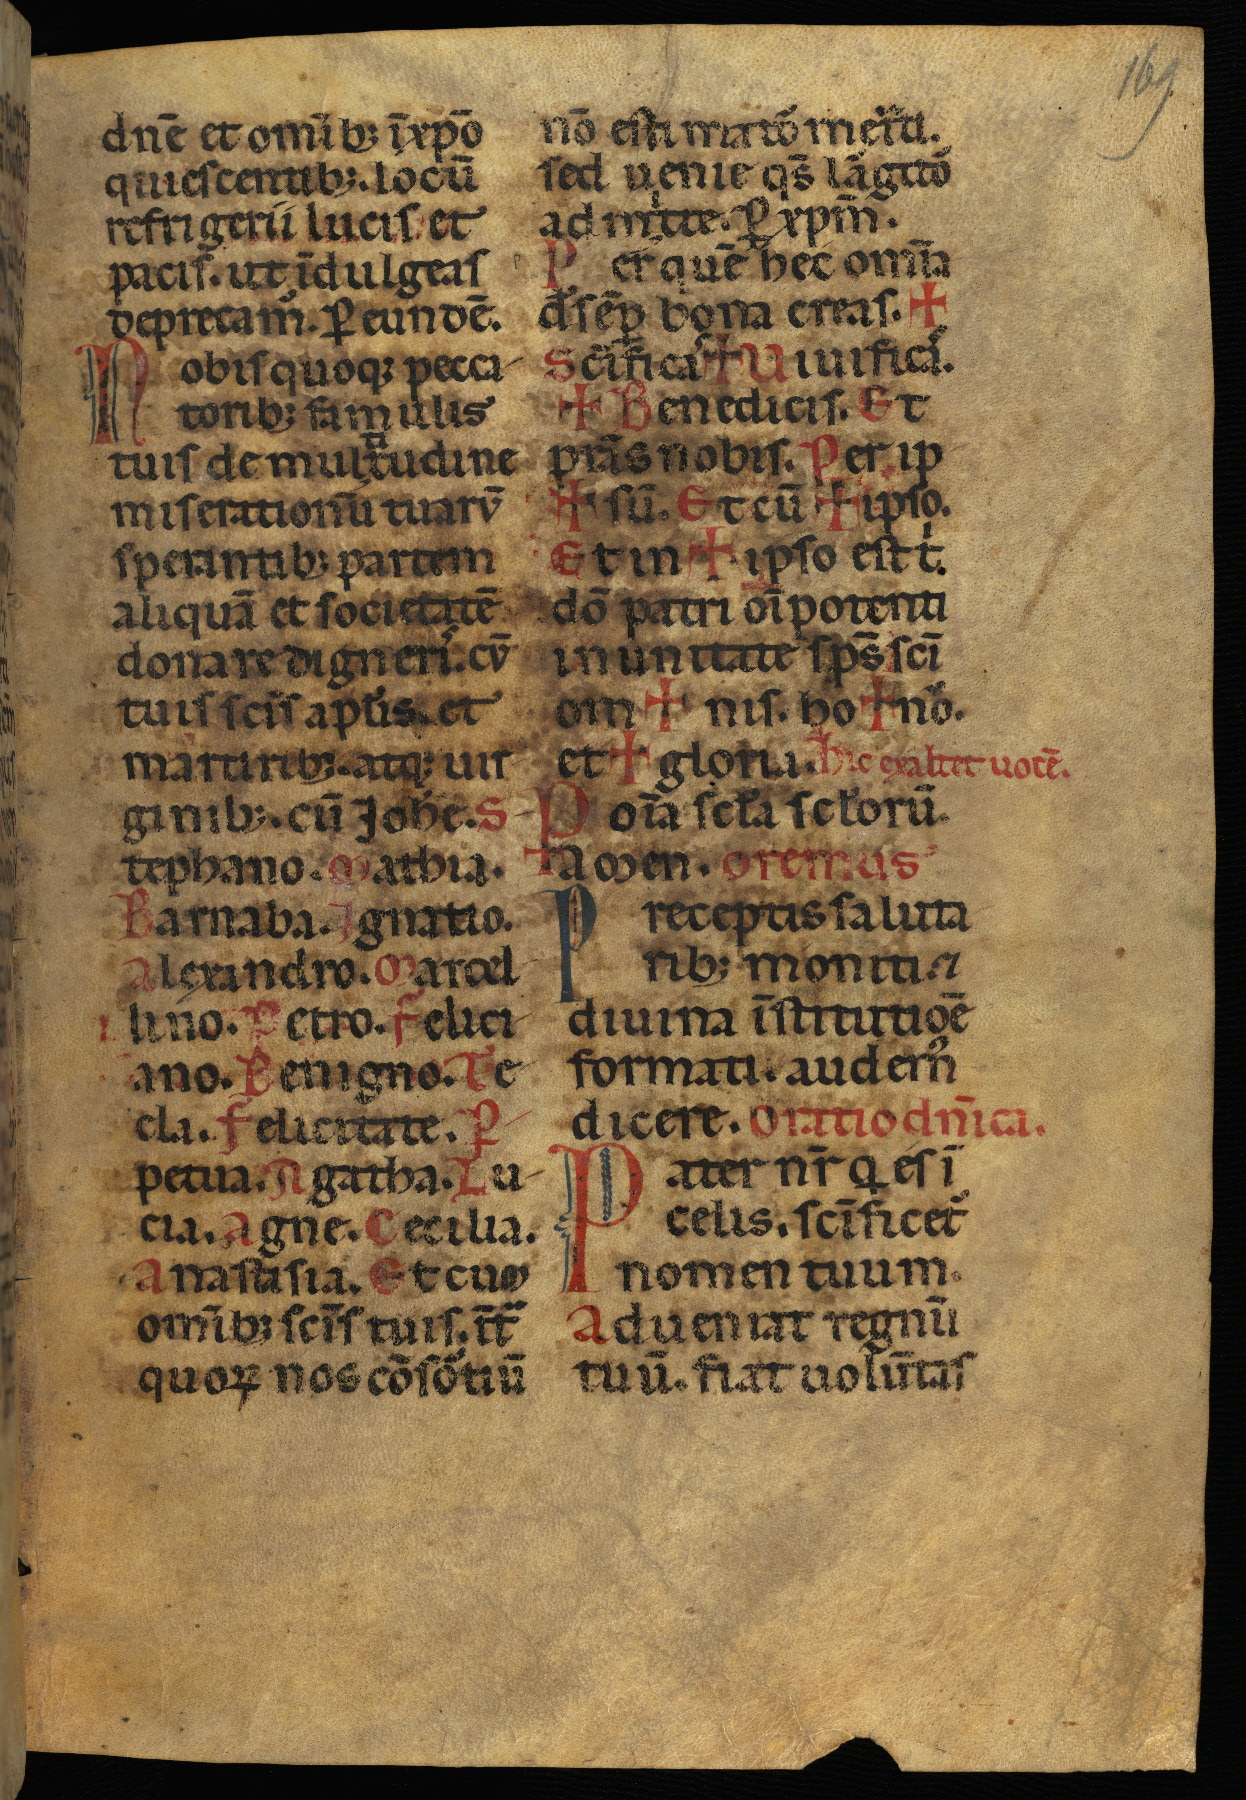 169
dnē et omīb; ī xpō
quiescentib;. locū
refrigerii lucis et
pacis. ut īdulgeas
deprecam̄. P eundē.
Nobis quoq; pecca
torib; famulis
tuis de multitudine
miserationū tuarū
sperantib; partem
aliquā et societatē
donare digneris. cū
tuis scīs aplis. et
martirib;. atq; uir
ginib;. cū Johē. S
tephano. Mathia.
Barnaba. Ignatio.
Alexandro. Marcel
lino. Petro. Felici
ano. Benigno. Te
cla. Felicitate. P
petua. Agatha. Lu
cia. Agne. Cecilia.
Anastasia. Et cum
omīb; scīs tuis. īt̄
quoꝝ nos cōsortiū
nō estimator meriti.
sed uenie qs̄ lāgitō
admitte. P xpm̄.
Per quē hec omīa
dˢ sēp bona creas. +
Scīficas + Uiuificas.
+ Benedicis. Et
prās nobis. Per ip
+ sū. Et cū + ipso.
Et in + ipso est t.
dō patri oīpotenti
in unitate sps̄ scī
om + nis. ho + nō.
et + gloria. hic exaltet uocē.
P oīa scła scłorū.
Amen. Oremus
Preceptis saluta
rib; moniti. ⁊
diuina īstitutiōe
formati. audem̄
dicere. Oratio dn̄ica.
Pater nr̄ q es ī
celis. scīficet
nomen tuum.
Adueniat regnū
tuū. fiat uolūtas